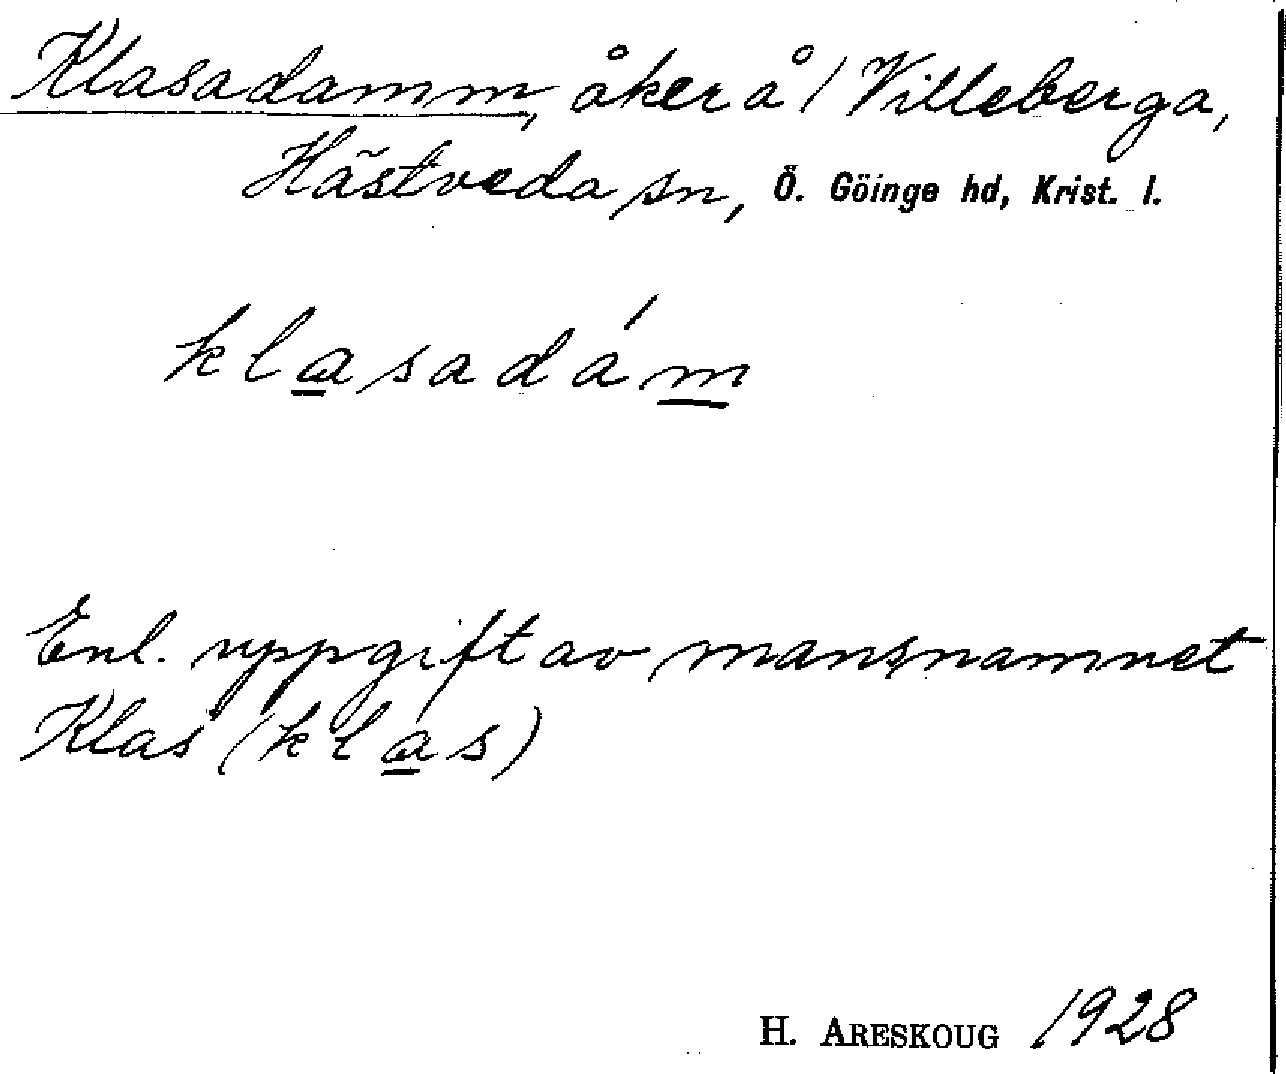 Klasadamm, åker å 1 Villeberga,
Hästveda sn, Ö. Göinge hd, Krist. l.
klasadám
Enl. uppgift av mansnamnet
Klas (klas)
H. ARESKOUG 1928